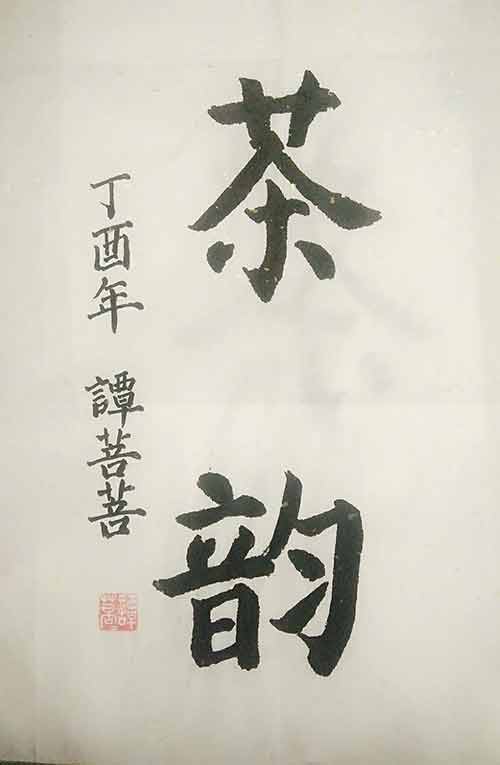 茶韵
丁酉年 譚菩菩